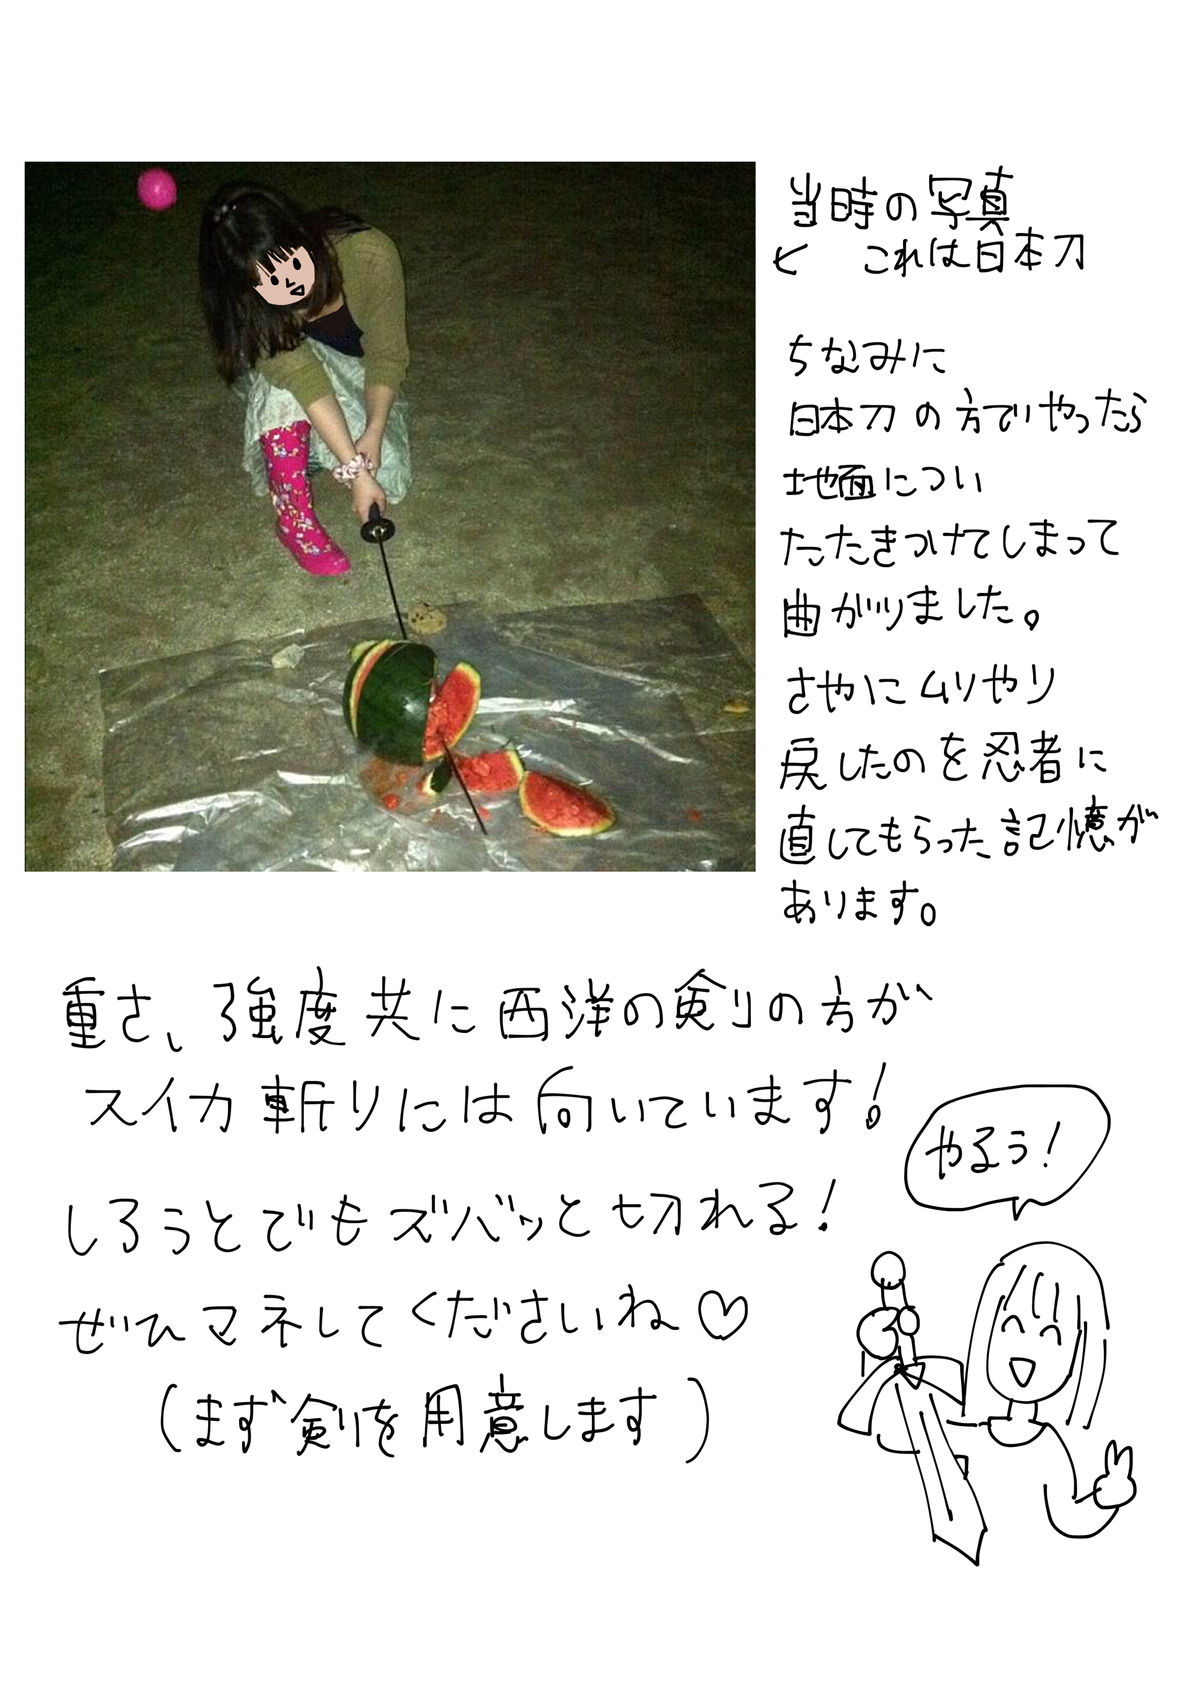 当時の写真
← これは日本刀
ちなみに
日本刀の方でやったら
地面につい
たたきつけてしまって
曲がりました。
さやにムリやり
戻したのを忍者に
直してもらった記憶が
あります。
重さ、強度共に西洋の剣の方が
スイカ斬りには向いています!
しろうとでもズバッと切れる!
ぜひマネしてくださいね♡
(まず剣を用意します)
やるぅ!